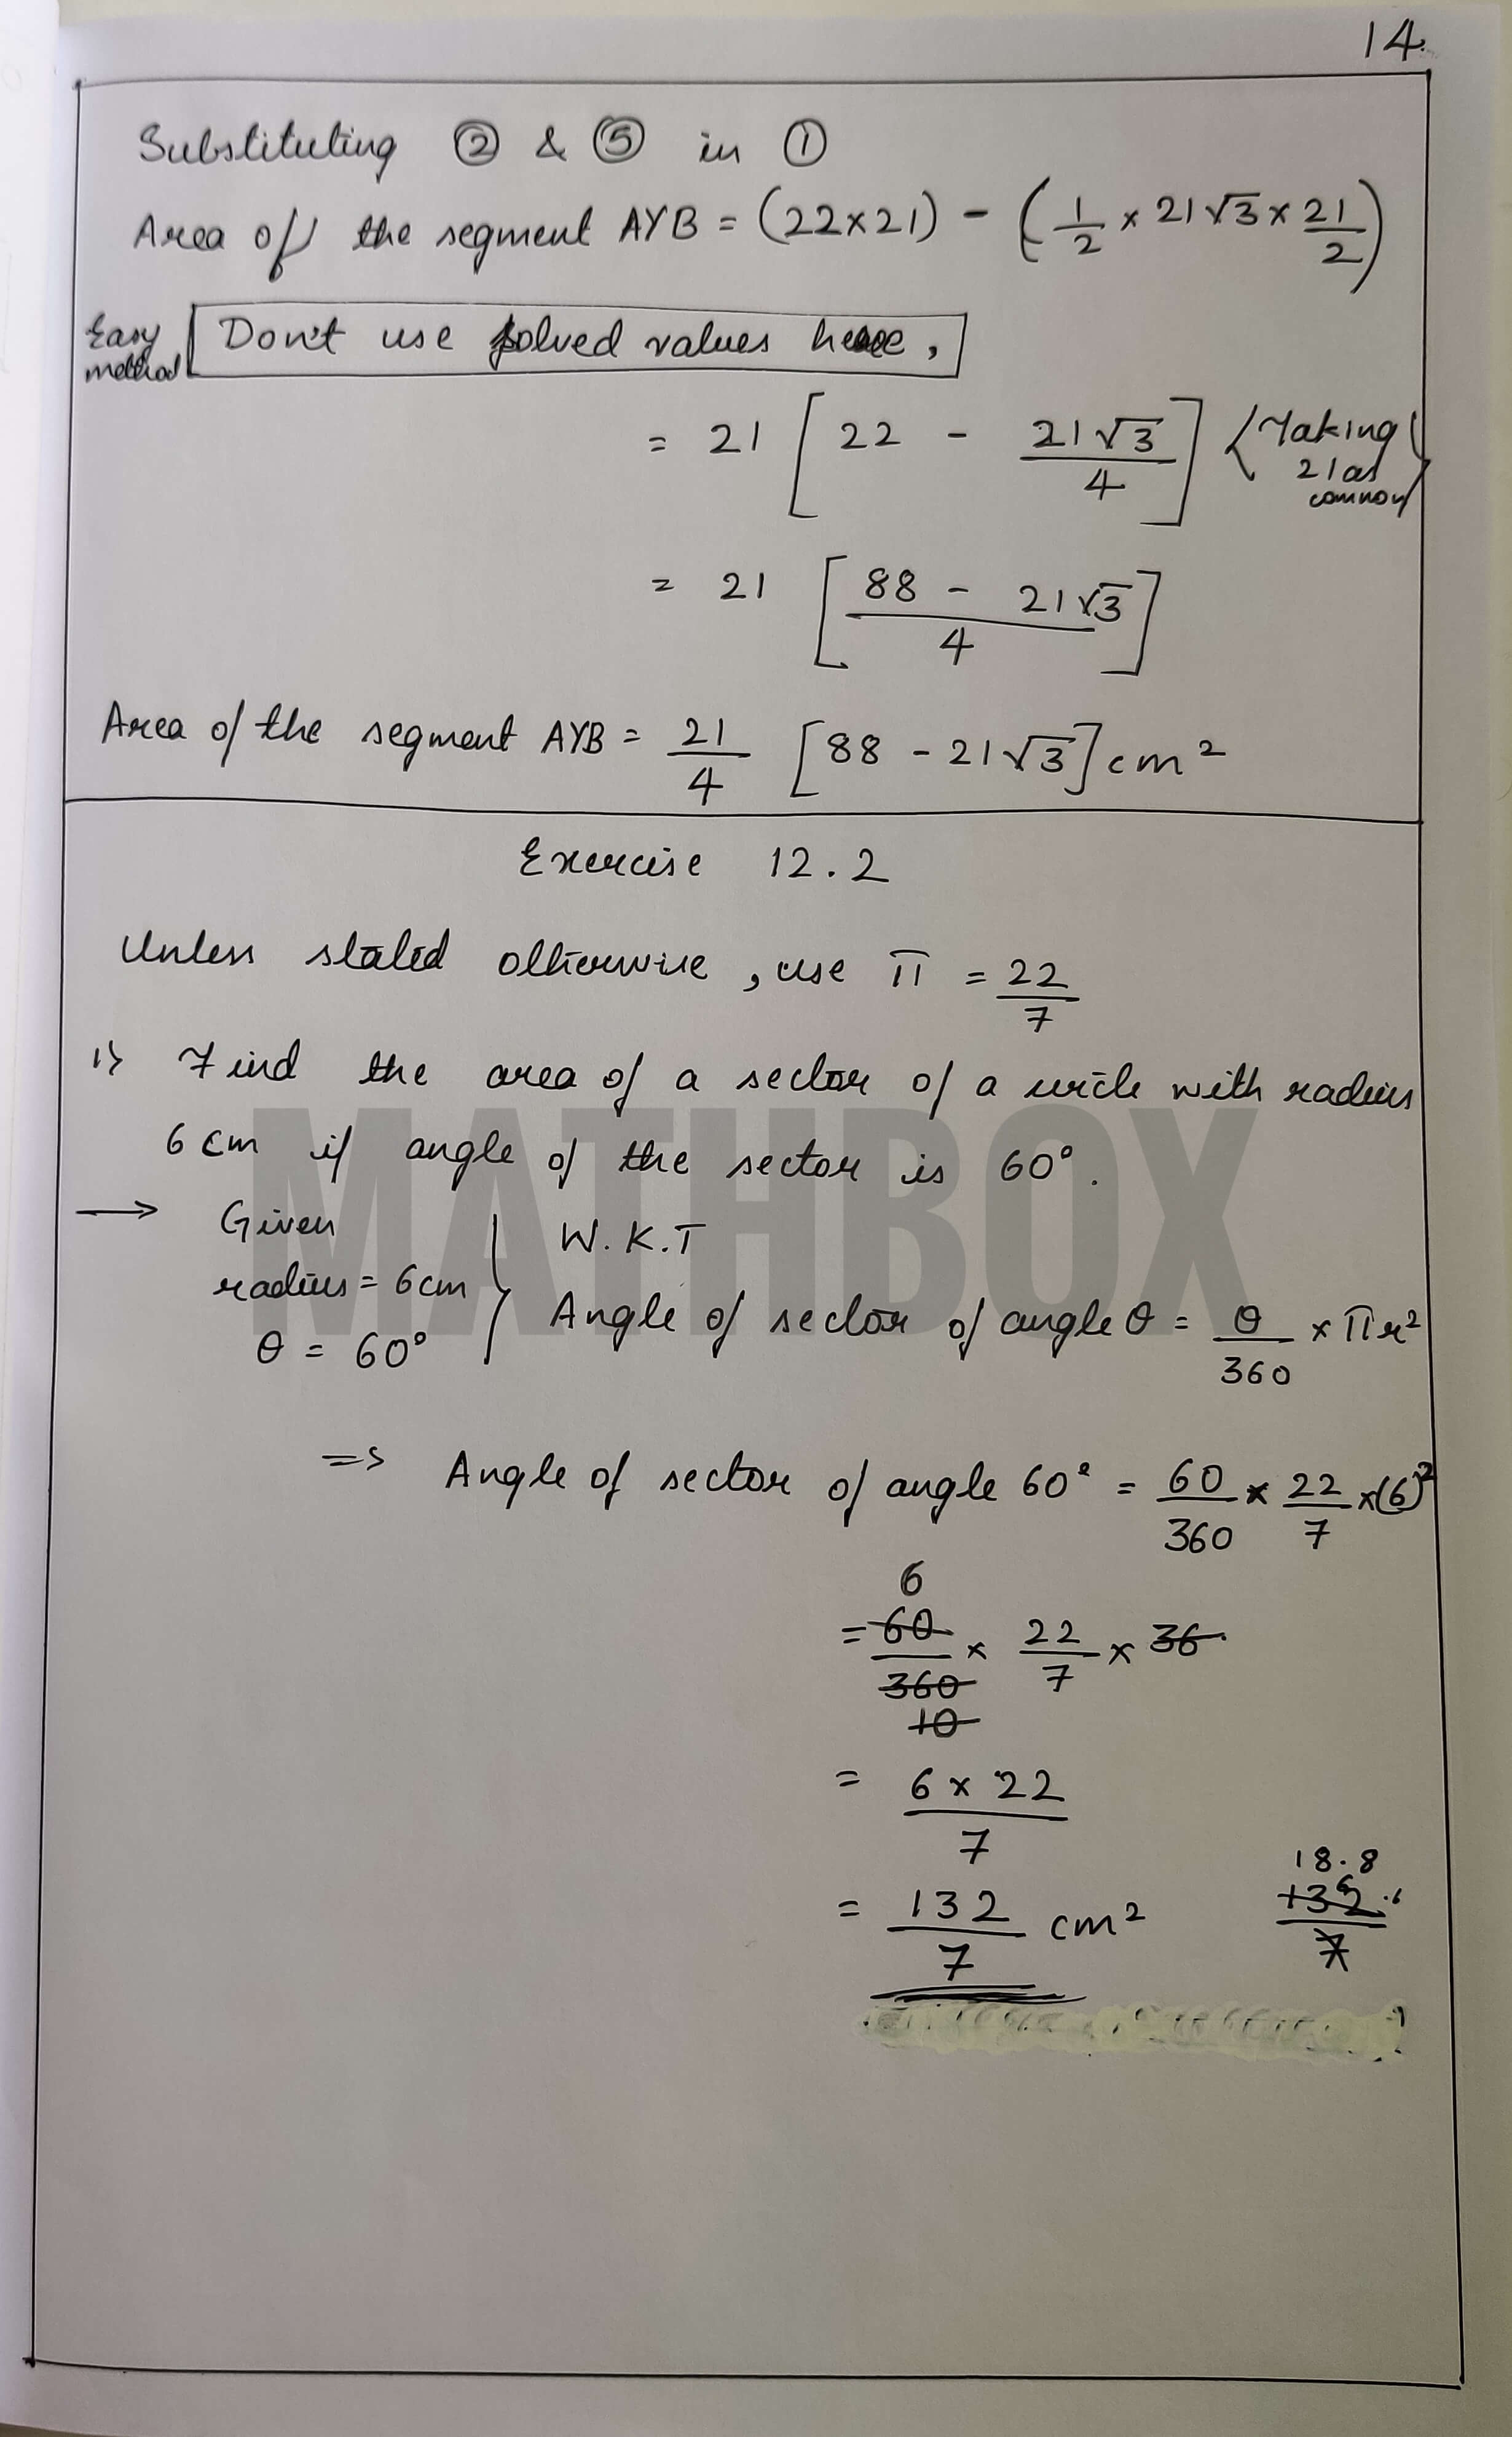 14.
Substituting ② & ⑤ in ①
Area of the segment AYB = (22×21) - (1/2 × 21√3 × 21/2)
Easy method
Don't use solved values here,
= 21 [22 - 21√3/4] {Taking 21 as common}
= 21 [88 - 21√3/4]
Area of the segment AYB = 21/4 [88 - 21√3] cm²
Exercise 12.2
Unless stated otherwise, use π = 22/7
1) Find the area of a sector of a circle with radius
6 cm if angle of the sector is 60°.
→ Given
radius = 6cm
θ = 60°
W.K.T
Angle of sector of angle θ = θ/360 × πr²
=> Angle of sector of angle 60° = 60/360 × 22/7 × (6)²
6
= 60/360 × 22/7 × 36
10
= 6 × 22/7
= 132/7 cm²
18.8
13⁶2.⁶/7
MATHBOX